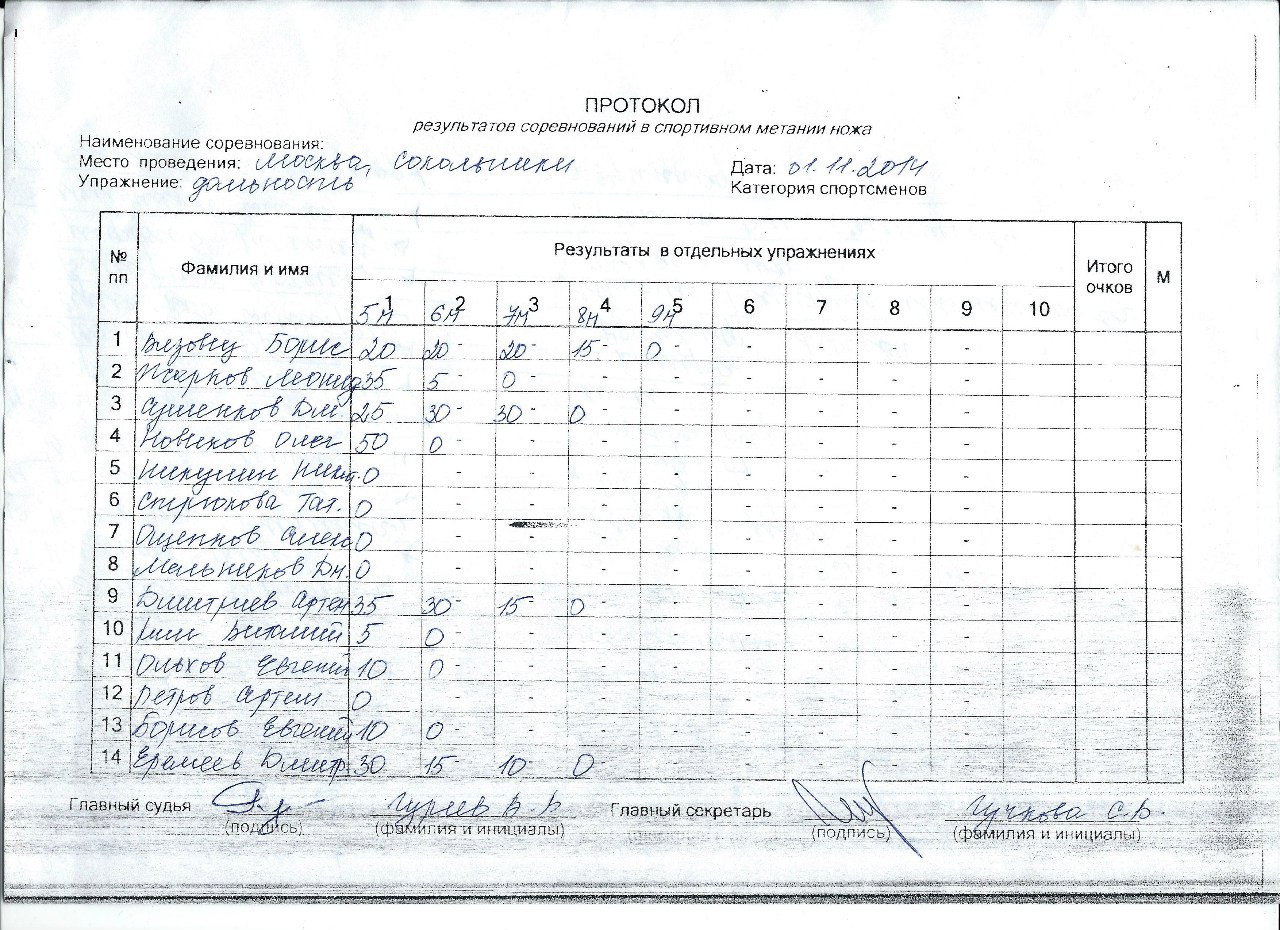 ПРОТОКОЛ
результатов соревнований в спортивном метании ножа
Наименование соревнования:
Место проведения: Москва, Сокольники Дата: 01.11.2014
Упражнение: дальность Категория спортсменов
№ пп Фамилия и имя Результаты в отдельных упражнениях Итого очков М
1 2 3 4 5 6 7 8 9 10
5м 6м 7м 8м 9м
1 Вязовец Борис 20 20 - 20 - 15 - 0 - - - - -
2 Жарков Леонид 35 5 - 0 - - - - - - -
3 Сушенков Дм. 25 30 - 30 - 0 - - - - - -
4 Новиков Олег 50 0 - - - - - - - -
5 Никулин Никит. 0 - - - - - - - -
6 Стрюкова Тат. 0 - - - - - - - -
7 Ощепков 0 - - - - - - - -
8 Мельников Дм. 0 - - - - - - - -
9 Дмитриев Артем 35 30 - 15 - 0 - - - - - -
10 Виталий 5 0 - - - - - - - -
11 Ольхов Евгений 10 0 - - - - - - - -
12 Петров Артем 0 - - - - - - - -
13 Борисов Евгений 10 0 - - - - - - - -
14 Еремеев Дмитр. 30 15 - 10 - 0 - - - - - -
Главный судья Гуреев В. В Главный секретарь Гучкова С.В.
(подпись) (фамилия и инициалы) (подпись) (фамилия и инициалы)